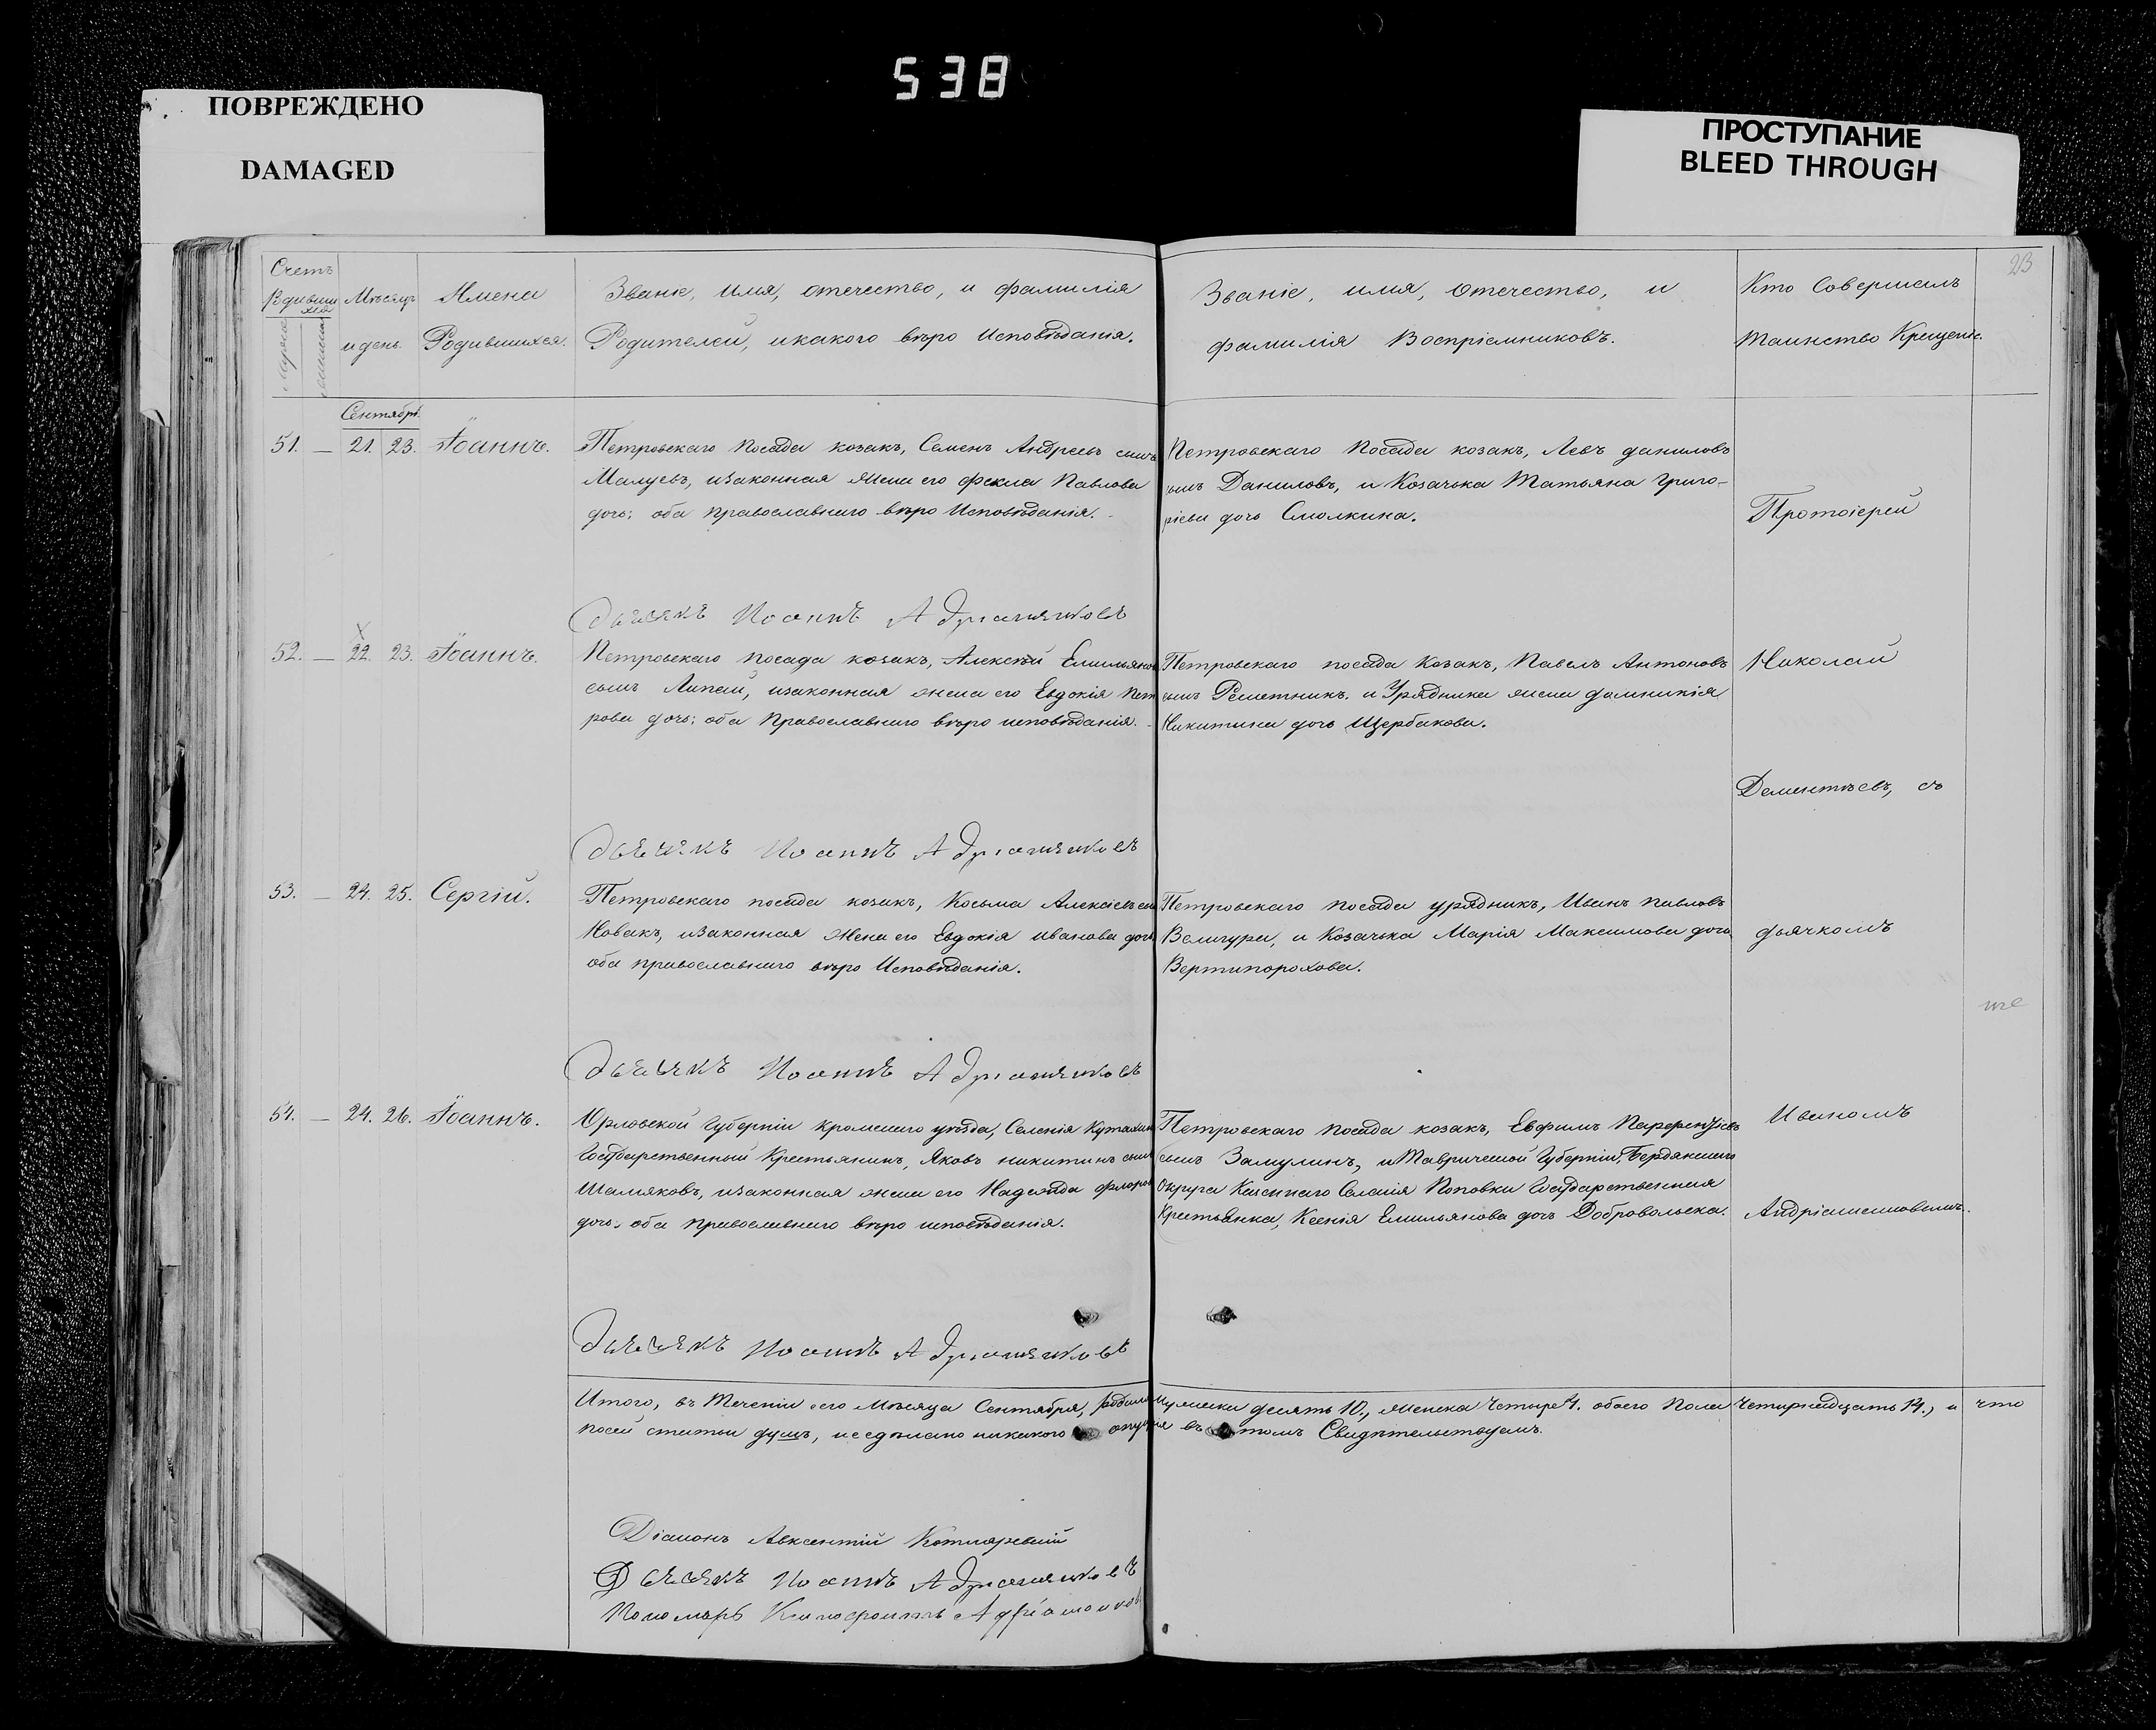 538
ПОВРЕЖДЕНО
DAMAGED
ПРОСТУПАНИЕ
BLEED THROUGH
23
Счетъ
Мѣсяцъ
и день.
Имена
Родившихся.
Званіе, имя, отечество, и фамилія
Родителей, и какого вѣро Исповѣданія.
Званіе, имя, Отечество, и
фамилія Воспріемниковъ.
Кто Совершилъ
таинство Крещенія.
Сентябрь.
51. — 21. 23. Іоаннъ.
Петровскаго посада козакъ, Семенъ Андреевъ сынъ
Малуевъ, изаконная жена его фекла Павлова
дочь; оба православнаго вѣро Исповѣданія.
Петровскаго посада козакъ, Левъ даниловъ
сынъ Даниловъ, и Козачька Татьяна Григо-
ріева дочь Смолкина.
Протоіерей
Дьячекъ Иоаннъ Адріяшяковъ
52. — 22. 23. Іоаннъ.
Петровскаго посада козакъ, Алексѣй Емильянов
сынъ Липай, изаконная жена его Евдокія Пет
рова дочь; оба Православнаго вѣро исповѣданія.
Петровскаго посада Козакъ, Павелъ Антоновъ
сынъ Решетникъ, и Урядника жена домникія
Никитина дочь Щербакова.
Николай
Дементьевъ, съ
Дьячекъ Иоаннъ Адріяшяковъ
53. — 24. 25. Сергій.
Петровскаго посада козакъ, Косьма Алексѣевъ сын
Новакъ, изаконная Жена его Евдокія иванова дочь
оба православнаго вѣро Исповѣданія.
Петровскаго посада урядникъ, Иванъ павловъ
Велигура, и Козачька Марія Максимова дочь
Вертипорохова.
дьячкомъ
Дьячекъ Иоаннъ Адріяшяковъ
54. — 24. 26. Іоаннъ.
Орловской Губерніи кромскаго уѣзда, Селенія
Государственный Крестьянинъ, Яковъ никитинъ сынъ
Шамяковъ, изаконная жена его Надежда флоров
дочь, оба православнаго вѣро исповѣданія.
Петровскаго посада козакъ, Евфимъ Парфентіевъ
сынъ Замулинъ, и Таврической Губерніи, Бердянскаго
Округа Казеннаго Селенія Поповки Государственная
Крестьянка, Ксенія Емильянова дочь Добровольска.
Иваномъ
Андріяшиковымъ.
Дьячекъ Иоаннъ Адріяшяковъ
Итого, въ Теченіи сего Мѣсяца Сентября, мужеска десять 10., женска Четыре 4. обоего Пола Четырнадцать 14., и что
посей статьи душъ, несдѣлано никакого въ томъ Свидѣтельствуемъ.
Діаконъ Авксентій Котляревскій
Дьячекъ Иоаннъ Адріяшяковъ
Пономарь